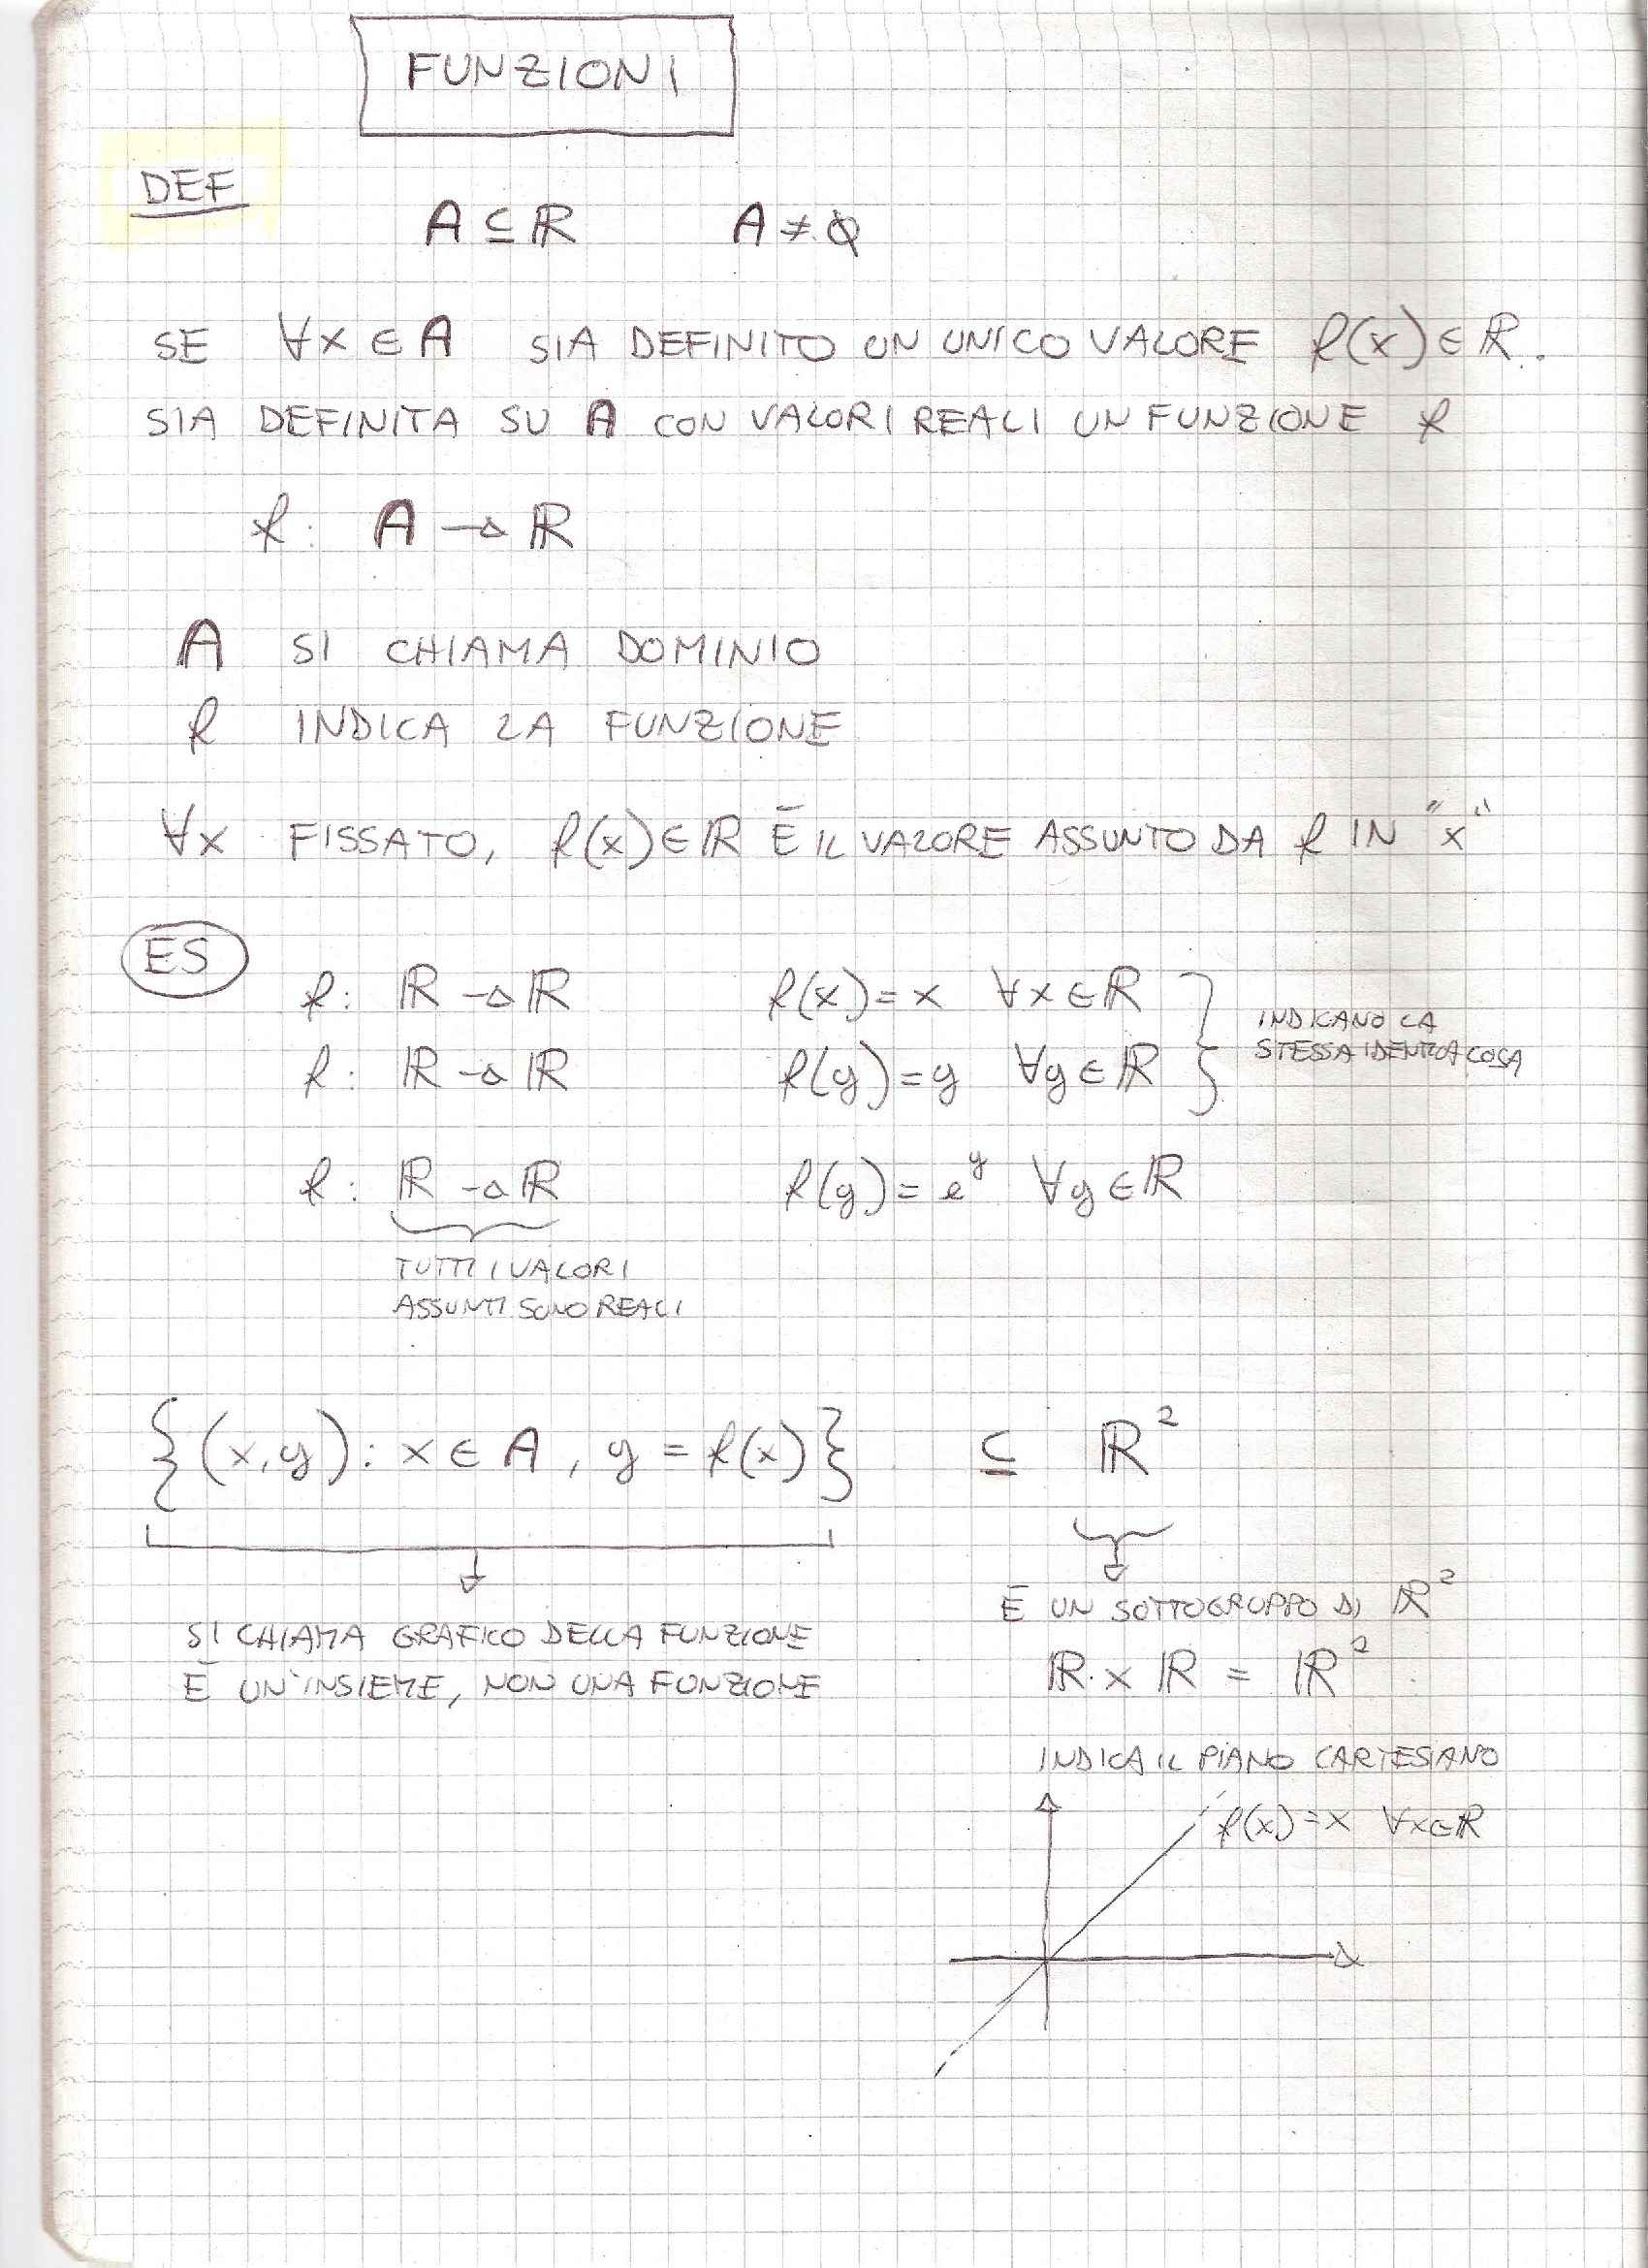 FUNZIONI
DEF
A ⊆ ℝ A ≠ ∅
SE ∀x ∈ A SIA DEFINITO UN UNICO VALORE f(x) ∈ ℝ.
SIA DEFINITA SU A CON VALORI REALI UN FUNZIONE f
f: A → ℝ
A SI CHIAMA DOMINIO
f INDICA LA FUNZIONE
∀x FISSATO, f(x) ∈ ℝ È IL VALORE ASSUNTO DA f IN "x"
ES
f: ℝ → ℝ f(x) = x ∀x ∈ ℝ
f: ℝ → ℝ f(y) = y ∀y ∈ ℝ
INDICANO LA
STESSA IDENTICA COSA
f: ℝ → ℝ f(y) = e^y ∀y ∈ ℝ
TUTTI I VALORI
ASSUNTI SONO REALI
{(x,y): x ∈ A, y = f(x)} ⊆ ℝ²
SI CHIAMA GRAFICO DELLA FUNZIONE
È UN'INSIEME, NON UNA FUNZIONE
È UN SOTTOGRUPPO DI ℝ²
ℝ × ℝ = ℝ²
INDICA IL PIANO CARTESIANO
f(x) = x ∀x ∈ ℝ